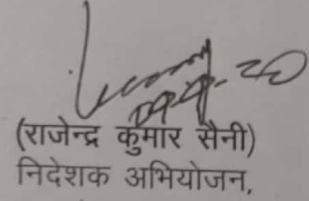 (राजेन्द्र कुमार सैनी)
निदेशक अभियोजन,